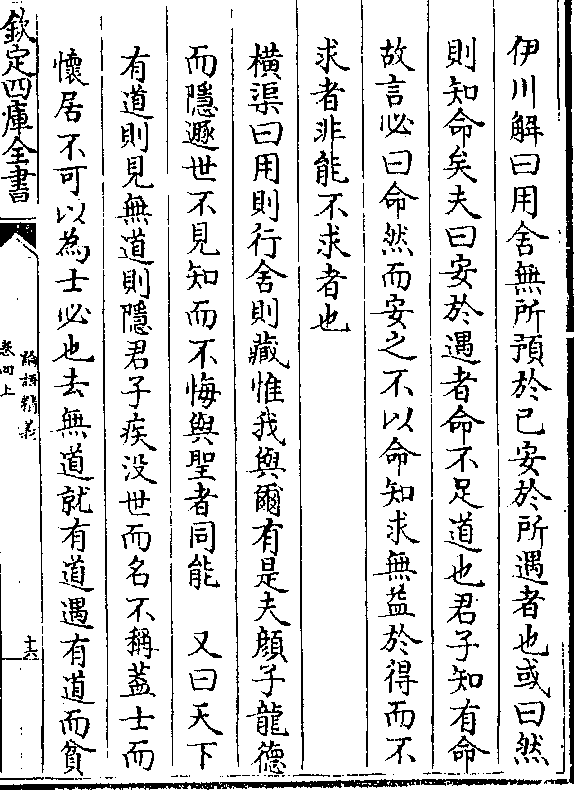 伊川解曰用舍無所預於已安於所遇者也或曰然
則知命矣夫曰安於遇者命不足道也君子知有命
故言必曰命然而安之不以命知求無益於得而不
求者非能不求者也
横渠曰用則行舍則藏惟我與爾有是夫顔子龍德
而隱遯世不見知而不悔與聖者同能　又曰天下
有道則見無道則隱君子疾没世而名不稱蓋士而
懷居不可以為士必也去無道就有道遇有道而貧
欽定四庫全書
論語精義
卷四上
十六